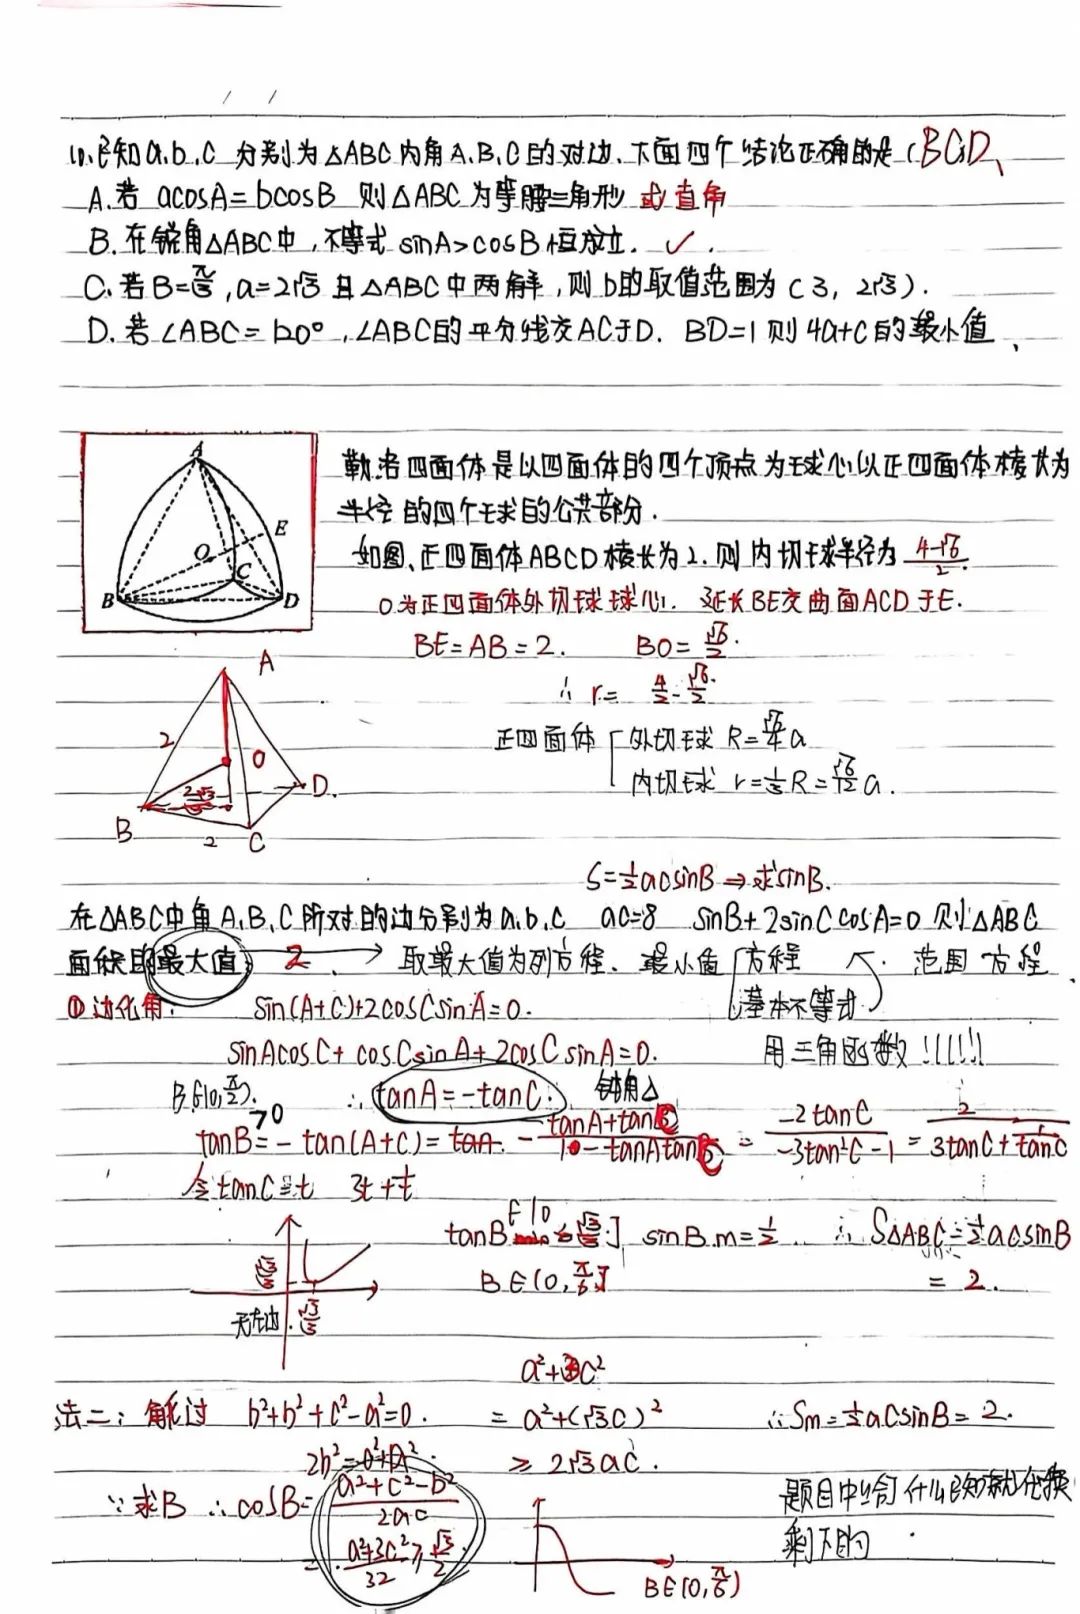 10.已知a.b.c 分别为△ABC内角A.B.C的对边.下面四个结论正确的是(BCD
A.若 acosA=bcosB 则△ABC为等腰三角形 或直角
B.在锐角△ABC中,不等式sinA>cosB恒成立. ✓.
C.若B=π/3,a=2√3且△ABC中两解,则b的取值范围为(3,2√3).
D.若∠ABC=120°,∠ABC的平分线交AC于D. BD=1则4a+c的最小值、
A
E
O
C
B
D
勒洛四面体是以四面体的四个顶点为球心以正四面体棱长为
半径的四个球的公共部分.
如图、正四面体ABCD棱长为2.则内切球半径为 (4-√6)/2.
O为正四面体外切球球心. 延长BE交曲面ACD于E.
BE=AB=2. BO=√6/2.
∴ r= 4/2-√6/2.
正四面体 外切球 R=√6/4 a
内切球 r=1/3R=√6/12 a.
A
2
O
D.
2√3/3
B
2
C
S=1/2acsinB⇒求sinB.
在△ABC中角A.B.C所对的边分别为a.b.c ac=8 sinB+2sinCcosA=0 则△ABC
面积的最大值 2 → 取最大值为列方程、最小值 方程 范围 方程、
基本不等式
① 边化角. sin(A+C)+2cosCsinA=0.
sinAcosC+cosCsinA+2cosCsinA=0. 用三角函数!!!!!
B∈(0,π/2). ∴ tanA=-tanC. 钝角△
>0
tanB=-tan(A+C)= -(tanA+tanC)/(1-tanAtanC) = -2tanC/(-3tan²C-1) = 2/(3tanC+1/tanC)
令tanC=t 3t+1/t
tanB ∈(0 √3/3] sinB.m=1/2. ∴ S△ABC=1/2acsinB
√3/3
B∈(0,π/6] = 2.
无左边. √3/3
a²+3c²
法二: 解过 b²+b²+c²-a²=0. =a²+(√3c)² ∴Sm=1/2acsinB=2.
≥ 2√3ac.
∵求B ∴cosB=(a²+c²-b²)/2ac
=(a²+3c²)/32 ≥ √3/2
题目中给什么已知就代换
剩下的.
B∈(0,π/6)